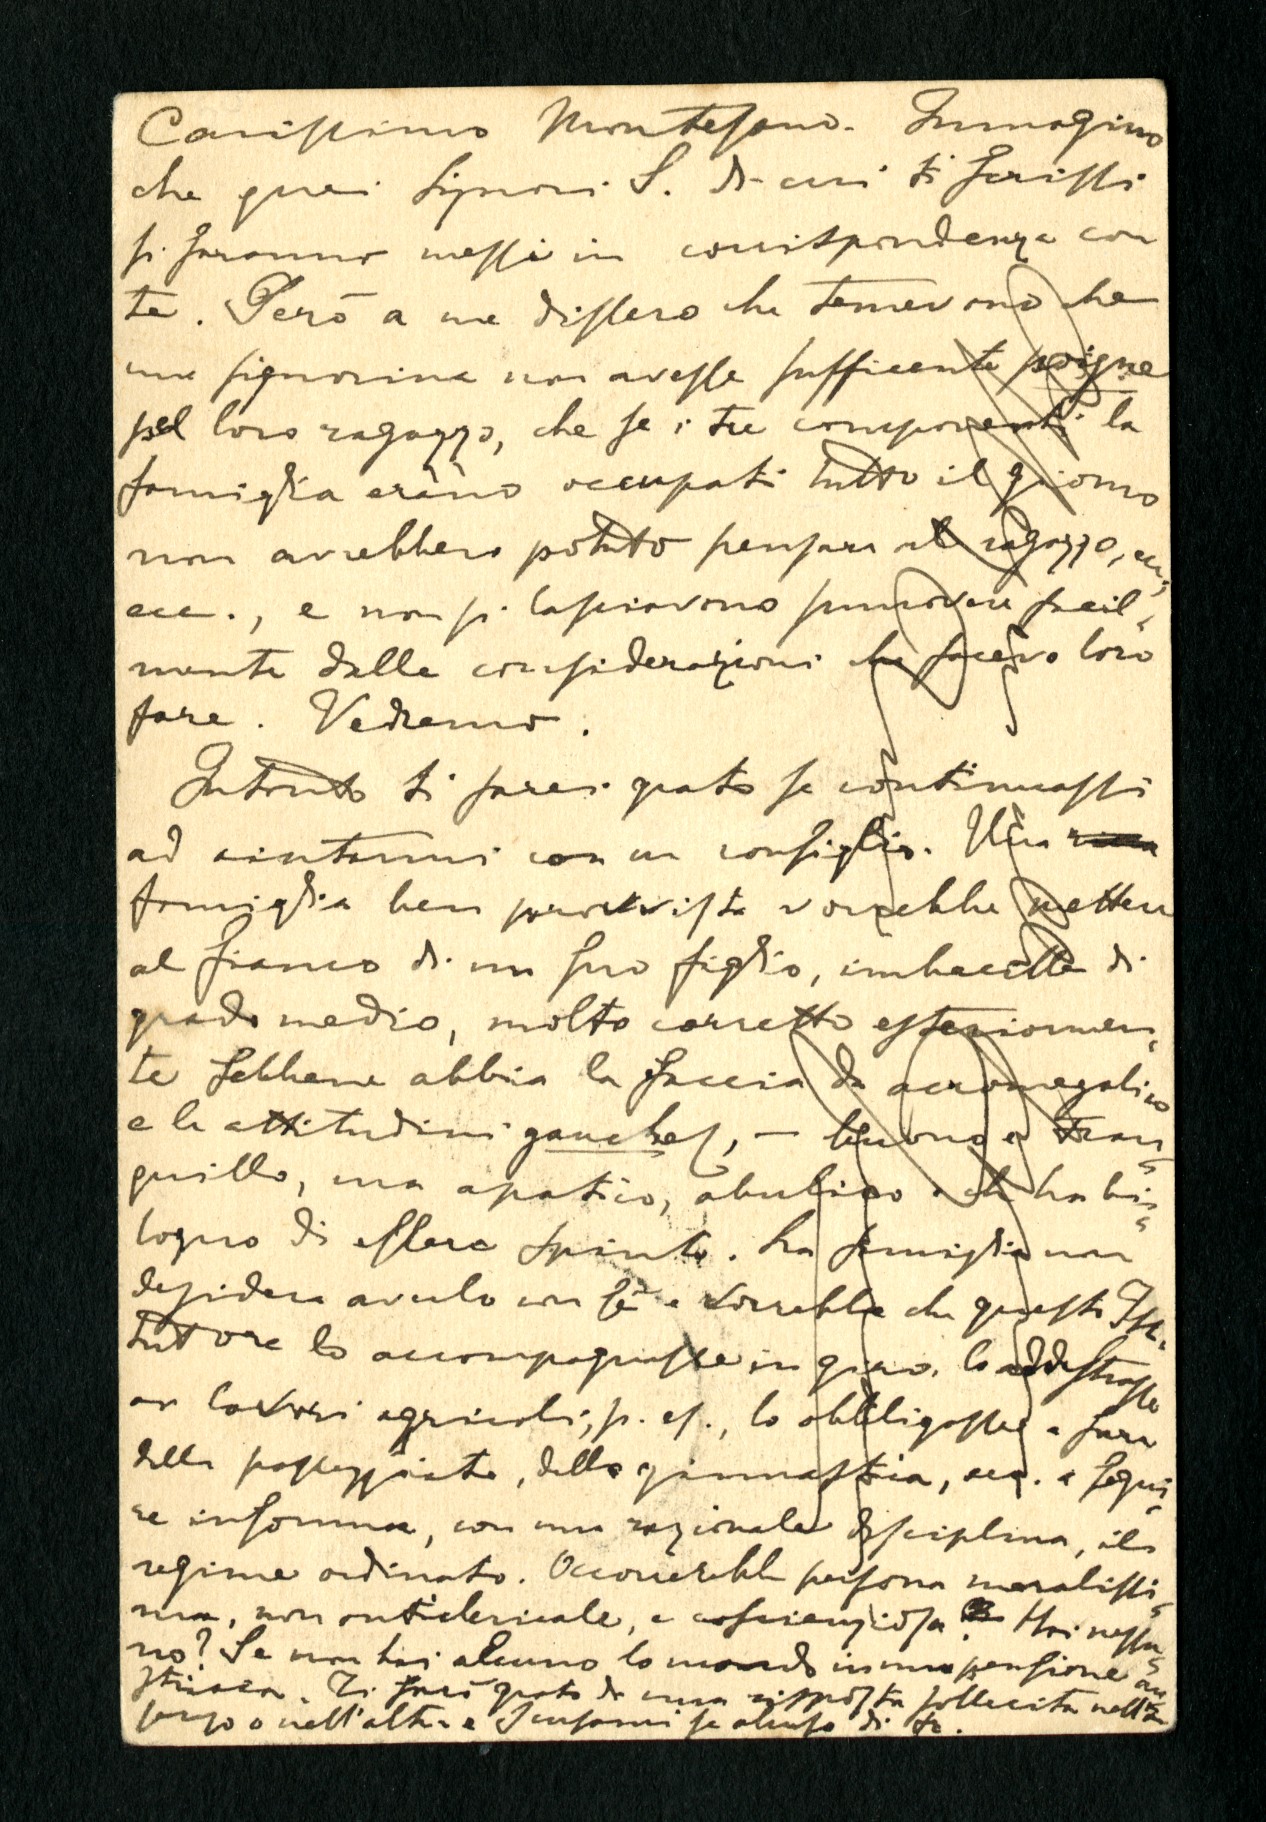 Carissimo Montesano. Immagino
che quei Signori S. di cui ti scrissi
si saranno messi in corrispondenza con
te. Però a me dissero che temevano che
una signorina non avesse sufficente poigne
pel loro ragazzo, che se i tre componenti la
famiglia erano occupati tutto il giorno
non avrebbero potuto pensare al ragazzo, ecc,
ecc., e non si lasciavono smuovere facil-
mente dalle considerazioni che facevo loro
fare. Vedremo.
Intanto ti sarei grato se continuassi
ad aiutarmi con un consiglio. Una
famiglia ben provvista vorrebbe mettere
al fianco di un suo figlio, imbecille di
grado medio, molto corretto esteriormen-
te sebbene abbia la faccia da acromegalico
e le attitudini gauches, — buono e tran-
quillo, ma apatico, abulico e che ha bi-
sogno di essere spinto. La famiglia non
desidera averlo con sè e vorrebbe che questo Isti-
tutore lo accompagnasse in giro, lo addestrasse
in lavori agricoli, p. es., lo obbligasse a fare
delle passeggiate, della ginnastica, ecc. e segui-
re insomma, con una razionale disciplina, il
regime ordinato. Occorrerebbe persona moralissi-
ma, non anticlericale, e coscienziosa. Hai nessu-
no? Se non hai alcuno lo mando in una pensione au-
striaca. Ti sarò grato di una risposta sollecita nell'un
senso o nell'altro e scusami se abuso di te.